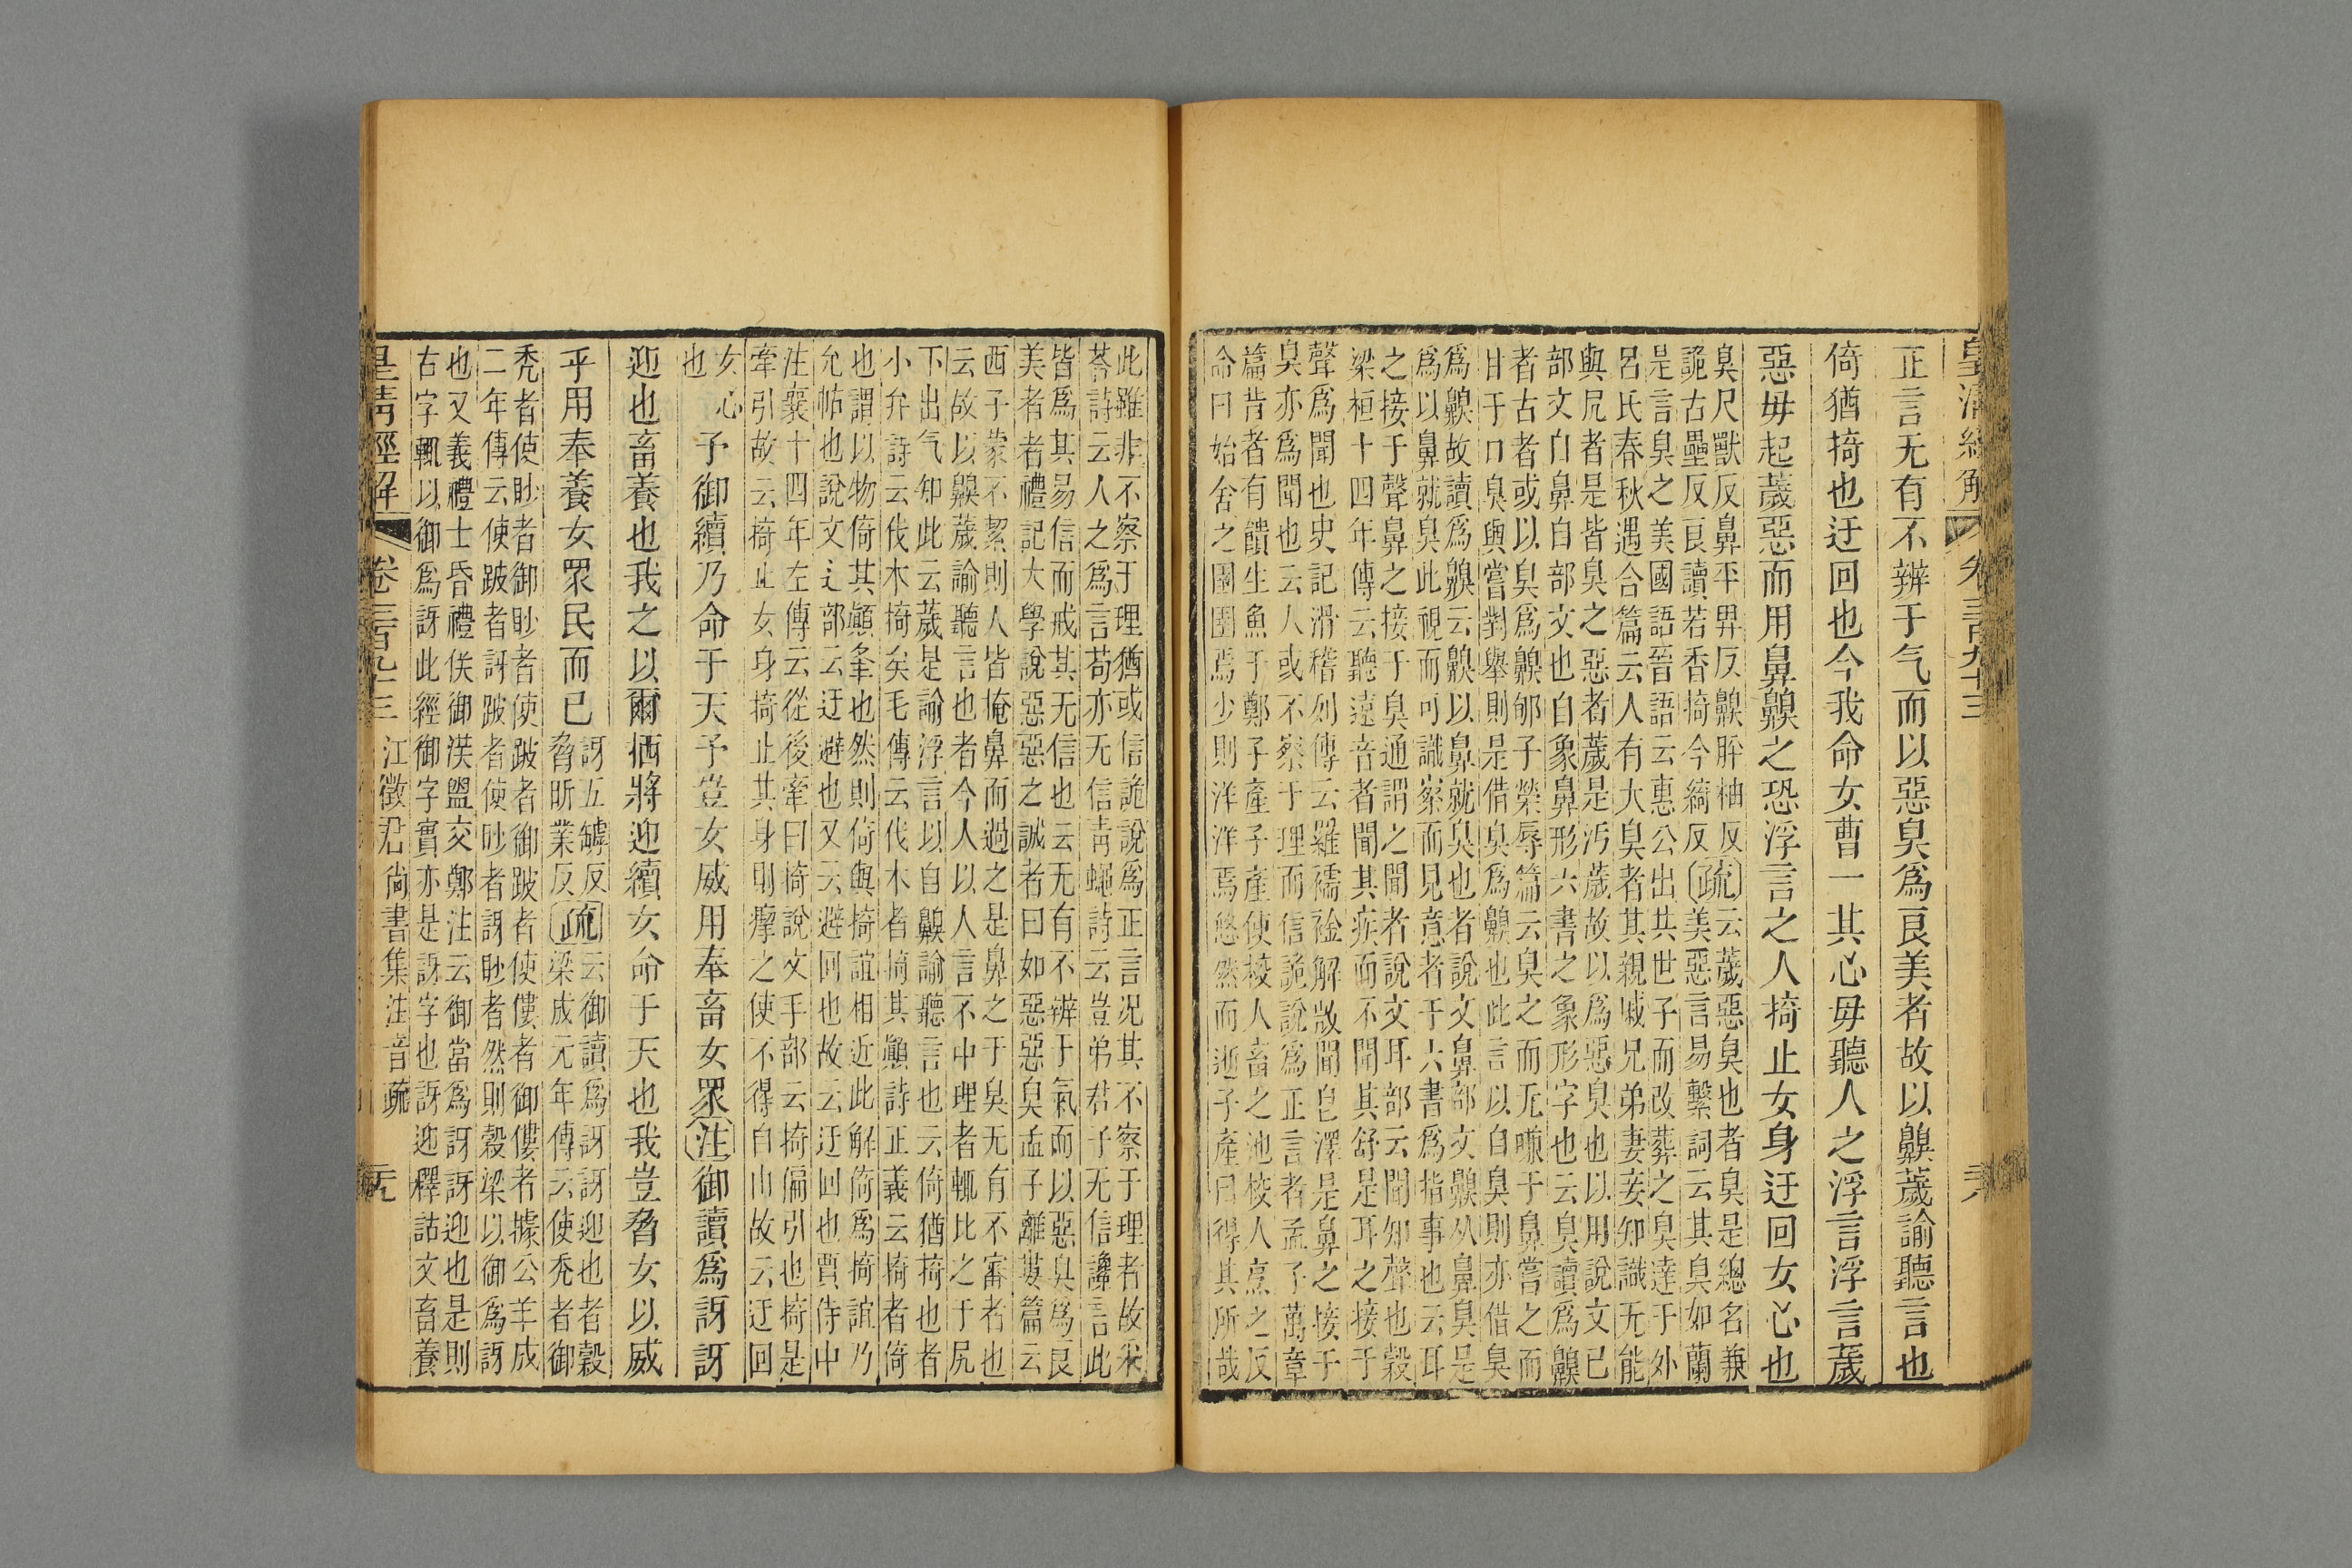 皇清經解 卷三百九十三
正言无有不辨于气而以惡臭爲良美者故以齅薉諭聽言也
倚猶掎也迂回也今我命女曹一其心毋聽人之浮言浮言薉
惡毋起薉惡而用鼻齅之恐浮言之人掎止女身迂回女心也
臭尺獸反鼻平畀反齅肸柚反
詭古壘反良讀若香掎今綺反
疏
云薉惡臭也者臭是總名兼
美惡言易繫詞云其臭如蘭
是言臭之美國語晉語云惠公出共世子而改葬之臭達于外
呂氏春秋遇合篇云人有大臭者其親戚兄弟妻妾知識无能
與凥者是皆臭之惡者薉是汚薉故以爲惡臭也以用說文巳
部文自鼻自部文也自象鼻形六書之象形字也云臭讀爲齅
者古者或以臭爲齅郇子榮辱篇云臭之而无嗛于鼻嘗之而
甘于口臭與嘗對舉則是借臭爲齅也此言以自臭則亦借臭
爲齅故讀爲齅云齅以鼻就臭也者說文鼻部文齅从鼻臭是
爲以鼻就臭此視而可識察而見意者于六書爲指事也云耳
之接于聲鼻之接于臭通謂之聞者說文耳部云聞知聲也穀
梁桓十四年傳云聽遠音者聞其疾而不聞其舒是耳之接于
聲爲聞也史記滑稽列傳云羅襦襘解微聞皀澤是鼻之接于
臭亦爲聞也云人或不察于理而信詭說爲正言者孟子萬章
篇昔者有饋生魚于鄭子產子產使校人畜之池校人烹之反
命曰始舍之圉圉焉少則洋洋焉悠然而逝子產曰得其所哉
此雖非不察于理猶或信詭說爲正言况其不察于理者故采
荅詩云人之爲言苟亦无信靑蠅詩云豈弟君子无信讒言此
皆爲其易信而戒其无信也云无有不辨于氣而以惡臭爲良
美者者禮記大學說惡惡之誠者曰如惡惡臭孟子離婁篇云
西子蒙不絜則人皆掩鼻而過之是鼻之于臭无有不審者也
云故以齅薉諭聽言也者今人以人言不中理者輒比之于凥
下出气知此云薉是諭浮言以自齅諭聽言也云倚猶掎也者
小弁詩云伐木掎矣毛傳云伐木者掎其顚詩正義云掎者倚
也謂以物倚其顚夆也然則倚與掎誼相近此解倚爲掎誼乃
允帖也說文辵部云迂避也又云避回也故云迂回也賈侍中
注襄十四年左傳云從後牽曰掎說文手部云掎偏引也掎是
牽引故云掎止女身掎止其身則㾗之使不得自由故云迂回
女心
也
予御續乃命于天予豈女威用奉畜女眾注御讀爲訝訝
迎也畜養也我之以爾栖將迎續女命于天也我豈脅女以威
乎用奉養女眾民而已
訝五罅反
脅昕業反
疏
云御讀爲訝訝迎也者穀
梁成元年傳云使秃者御
秃者使眇者御眇者使跛者御跛者使僂者御僂者據公羊成
二年傳云使跛者訝跛者使眇者訝眇者然則穀梁以御爲訝
也又義禮士昏禮媵御渶盥交鄭注云御當爲訝訝迎也是則
古字輒以御爲訝此經御字實亦是訝字也訝迎釋詁文畜養
皇清經解 卷三百九十三 江徵君尙書集注音疏